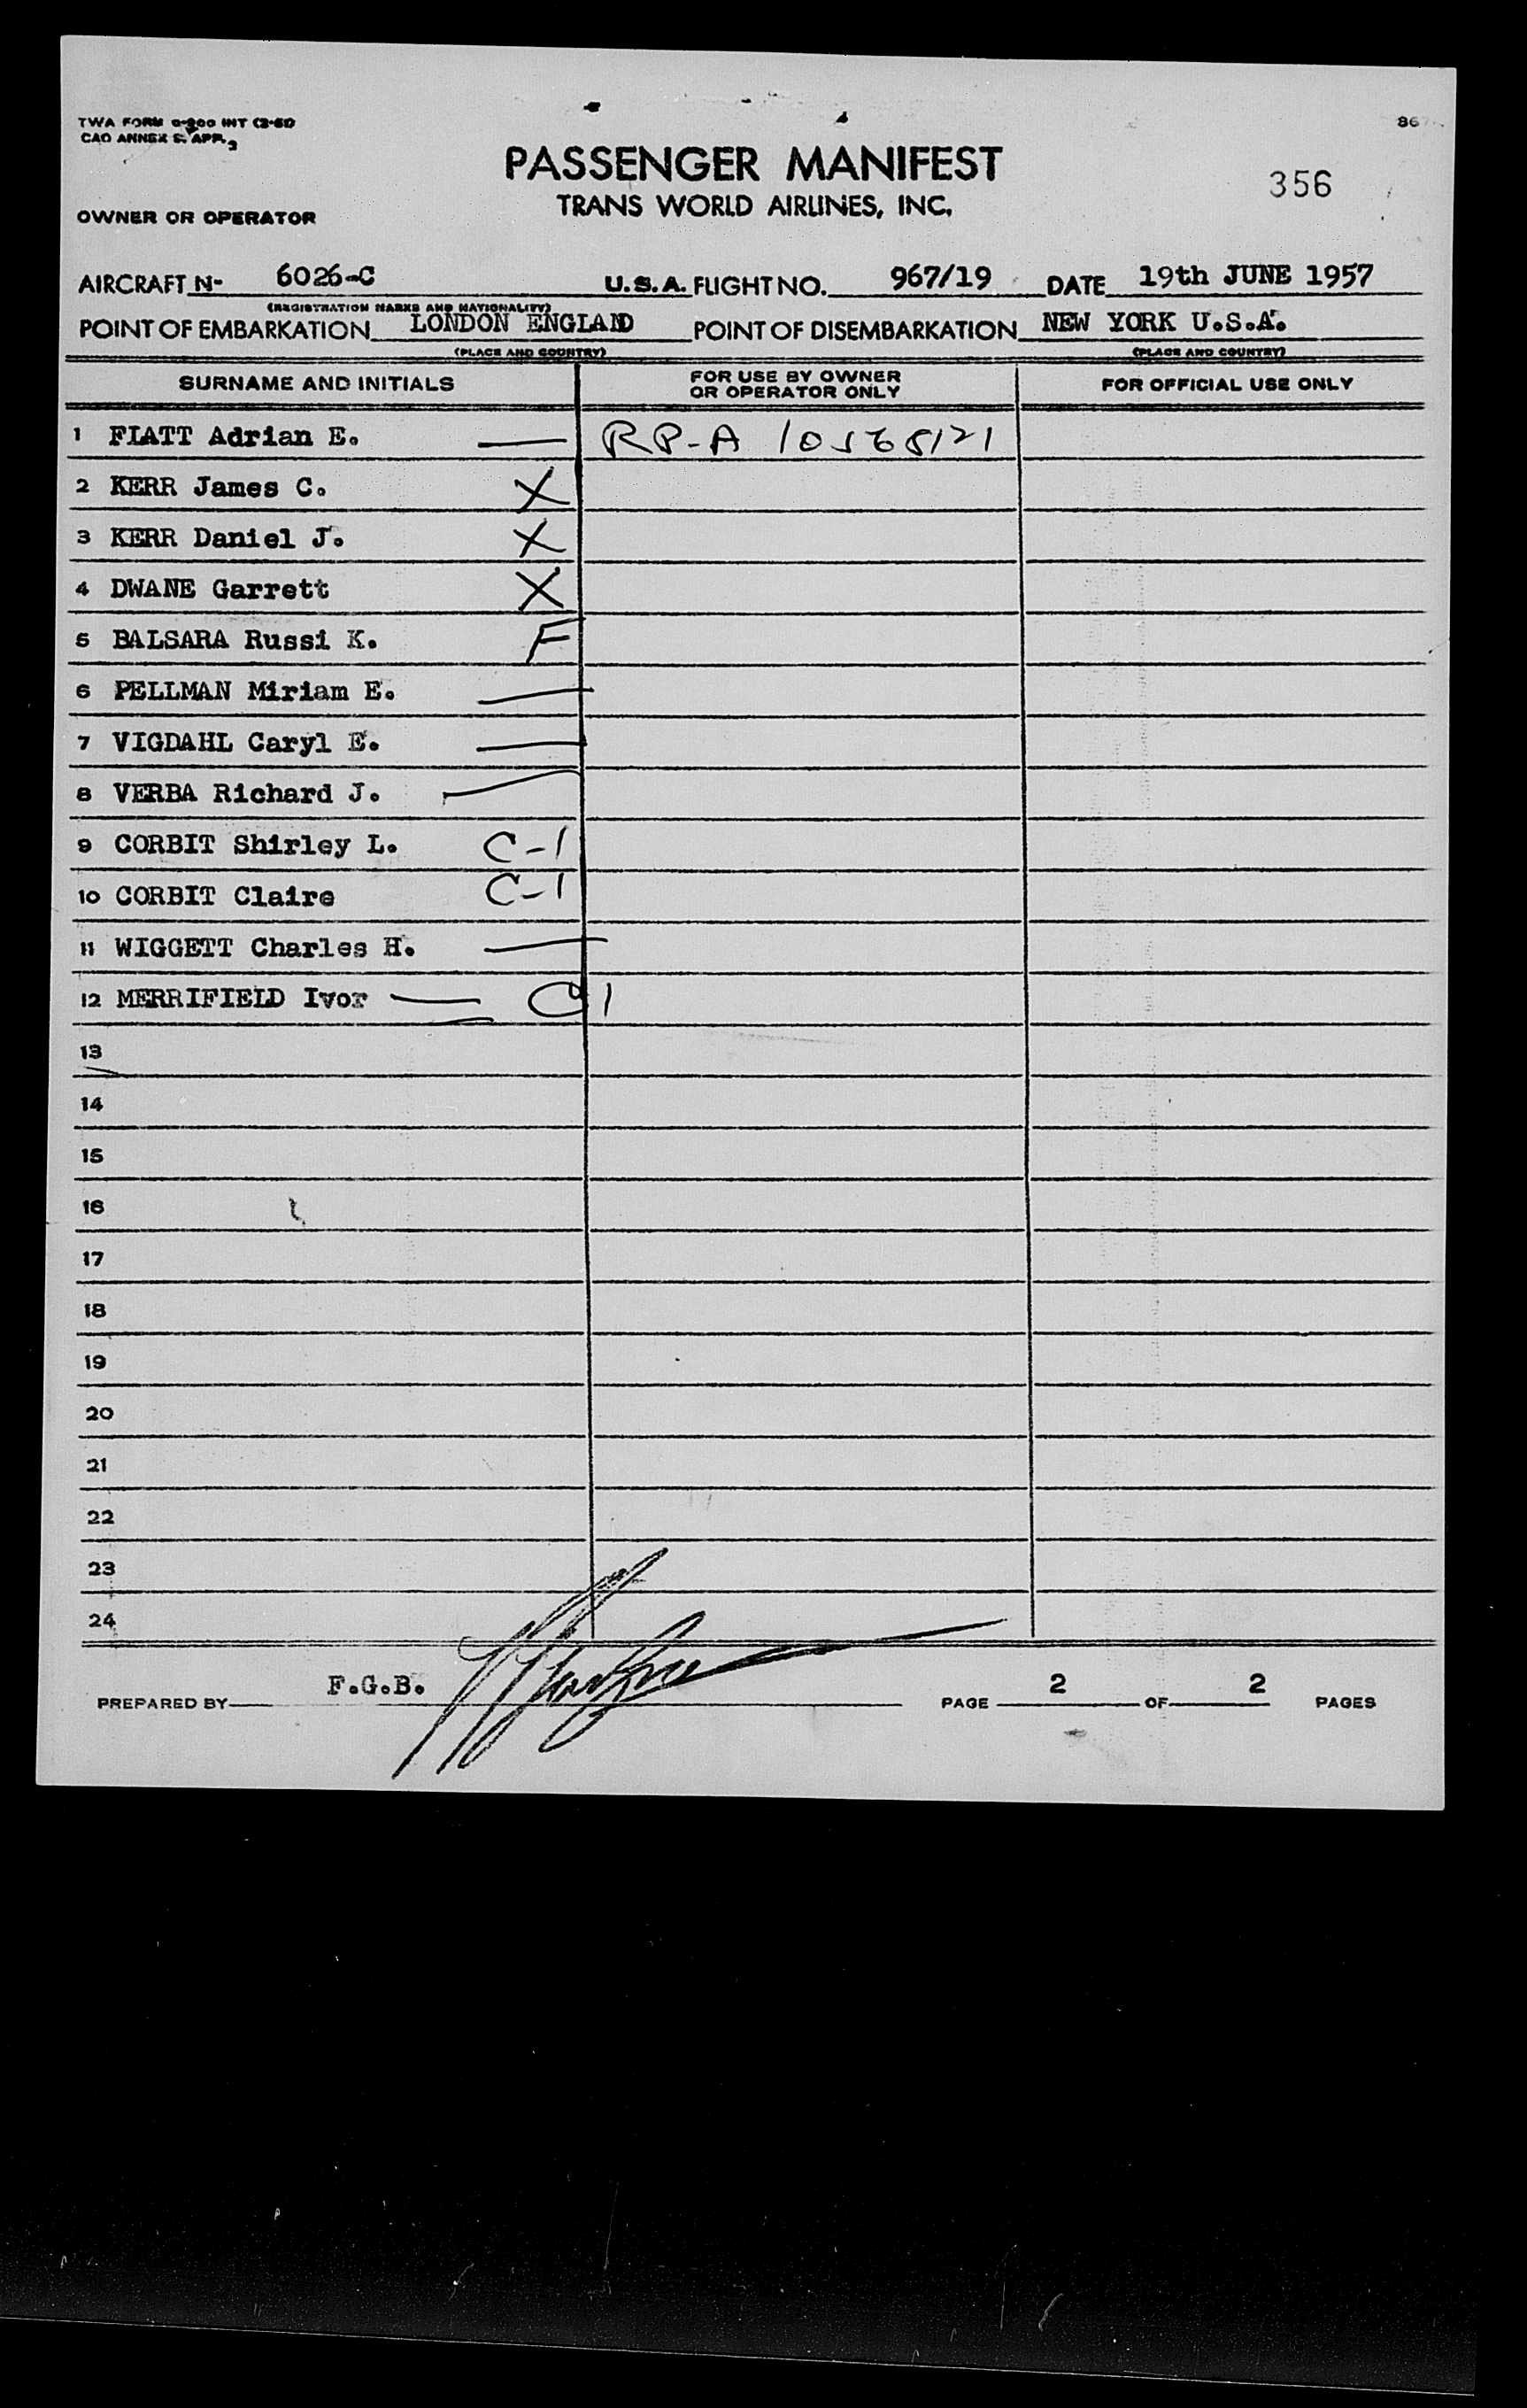 TWA FORM 0-200 INT (2-51)
CAO ANNEX 9, APP. 3
86
PASSENGER MANIFEST
356
TRANS WORLD AIRLINES, INC.
OWNER OR OPERATOR
AIRCRAFT N- 6026-C U.S.A. FLIGHT NO. 967/19 DATE 19th JUNE 1957
(REGISTRATION MARKS AND NATIONALITY)
POINT OF EMBARKATION LONDON ENGLAND POINT OF DISEMBARKATION NEW YORK U.S.A.
(PLACE AND COUNTRY) (PLACE AND COUNTRY)
SURNAME AND INITIALS FOR USE BY OWNER OR OPERATOR ONLY FOR OFFICIAL USE ONLY
1 FIATT Adrian E. — RP-A 10568121
2 KERR James C. X
3 KERR Daniel J. X
4 DWANE Garrett X
5 BALSARA Russi K. F
6 PELLMAN Miriam E. —
7 VIGDAHL Caryl E. —
8 VERBA Richard J. —
9 CORBIT Shirley L. C-1
10 CORBIT Claire C-1
11 WIGGETT Charles H. —
12 MERRIFIELD Ivor — C 1
13
14
15
16
17
18
19
20
21
22
23
24
PREPARED BY F.G.B. PAGE 2 OF 2 PAGES